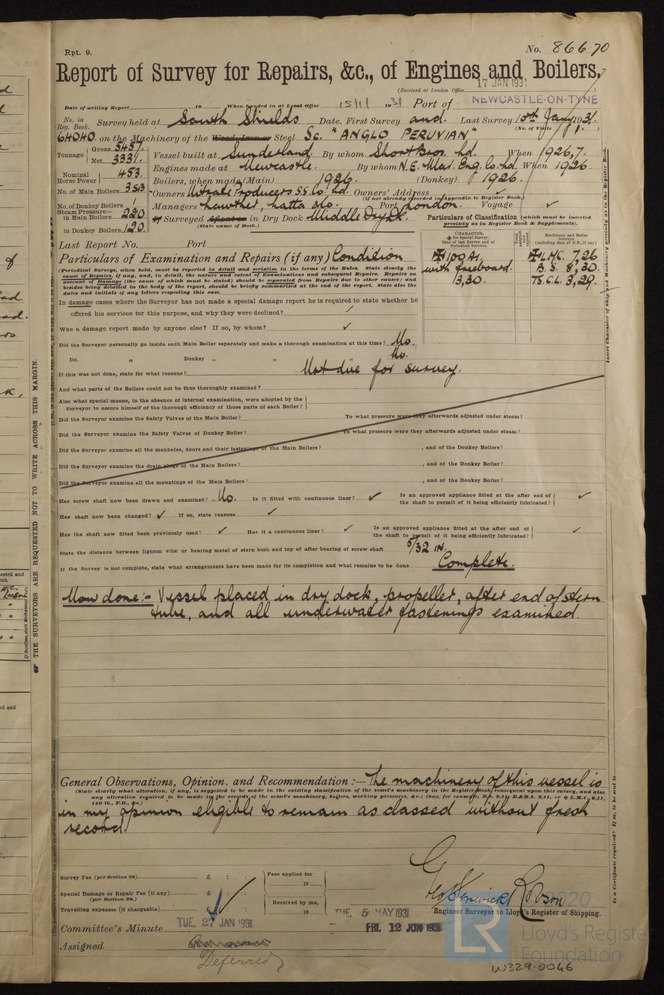 Rpt. 9.
No. 86670
Report of Survey for Repairs, &c., of Engines and Boilers.
(Received at London Office 17 JAN 1931
Date of writing Report 19 When handed in at Local Office 15/1/1931 Port of NEWCASTLE-ON-TYNE
No. in Reg. Book. Survey held at South Shields Date, First Survey and Last Survey 10th Jany 1931
(No. of Visits 1)
64040 on the Machinery of the Wood, Iron or Steel Sc. "ANGLO PERUVIAN"
Tonnage Gross 5457 Net 3331 Vessel built at Sunderland By whom Short Bros. Ld. When 1926,7
Engines made at Newcastle By whom N.E. Mar. Eng. Co. Ld. When 1926
Nominal Horse Power 453 Boilers, when made (Main) 1926 (Donkey) 1926
No. of Main Boilers 3SB Owners Nitrate Producers SS. Co. Ld. Owners' Address
(if not already recorded in Appendix to Register Book.)
No. of Donkey Boilers 1 Managers Lawther, Latta & Co. Port London Voyage ✓
Steam Pressure in Main Boilers 220 If Surveyed Afloat or in Dry Dock Middle Docks
(State name of Dock.)
in Donkey Boilers 120
Particulars of Classification (which must be inserted precisely as in Register Book & Supplements).
Last Report No. Port
Particulars of Examination and Repairs (if any) Condition
100 A1
with freeboard
3,30.
LMC. 7,26
B.S. 8,30
TS.CL 3,29.
In damage cases where the Surveyor has not made a special damage report he is required to state whether he
offered his services for this purpose, and why they were declined? ✓
Was a damage report made by anyone else? If so, by whom? ✓
Did the Surveyor personally go inside each Main Boiler separately and make a thorough examination at this time? No.
Do. „ Donkey „ „ No.
If this was not done, state for what reasons? Not due for survey.
And what parts of the Boilers could not be thus thoroughly examined?
Also what special means, in the absence of internal examination, were adopted by the
Surveyor to assure himself of the thorough efficiency of those parts of each Boiler?
Did the Surveyor examine the Safety Valves of the Main Boiler? To what pressure were they afterwards adjusted under steam?
Did the Surveyor examine the Safety Valves of Donkey Boiler? To what pressure were they afterwards adjusted under steam?
Did the Surveyor examine all the manholes, doors and their fastenings of the Main Boilers? , and of the Donkey Boilers?
Did the Surveyor examine the drain plugs of the Main Boilers? , and of the Donkey Boiler?
Did the Surveyor examine all the mountings of the Main Boilers? , and of the Donkey Boiler?
Has screw shaft now been drawn and examined? No. Is it fitted with continuous liner? ✓ Is an approved appliance fitted at the after end of the shaft to permit of it being efficiently lubricated? ✓
Has shaft now been changed? ✓ If so, state reasons ✓
Has the shaft now fitted been previously used? ✓ Has it a continuous liner? ✓ Is an approved appliance fitted at the after end of the shaft to permit of it being efficiently lubricated? ✓
State the distance between lignum vitæ or bearing metal of stern bush and top of after bearing of screw shaft 5/32 IN.
If the Survey is not complete, state what arrangements have been made for its completion and what remains to be done Complete.
Now done:- Vessel placed in dry dock, propeller, after end of stern
tube, and all underwater fastenings examined.
General Observations, Opinion, and Recommendation:— The machinery of this vessel is
in my opinion eligible to remain as classed without fresh
record.
Survey Fee (per Section 29.) £ : :
Special Damage or Repair Fee (if any) (per Section 29.) £ : :
Travelling expenses (if chargeable) £ : :
Fees applied for 19
Received by me, 19
Geo Fenwick Robson
Engineer Surveyor to Lloyd's Register of Shipping.
Committee's Minute TUE. 27 JAN 1931 TUE. 5 MAY 1931 FRI. 12 JUN 1931
Assigned
Deferred
THE SURVEYORS ARE REQUESTED NOT TO WRITE ACROSS THIS MARGIN.
2020
LR
Lloyd's Register
Foundation
W329-0046